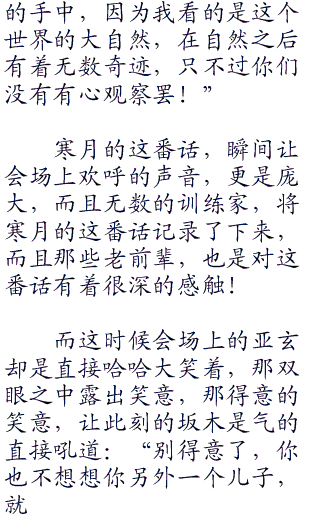 的手中，因为我看的是这个
世界的大自然，在自然之后
有着无数奇迹，只不过你们
没有有心观察罢！”
寒月的这番话，瞬间让
会场上欢呼的声音，更是庞
大，而且无数的训练家，将
寒月的这番话记录了下来，
而且那些老前辈，也是对这
番话有着很深的感触！
而这时候会场上的亚玄
却是直接哈哈大笑着，那双
眼之中露出笑意，那得意的
笑意，让此刻的坂木是气的
直接吼道：“别得意了，你
也不想想你另外一个儿子，
就